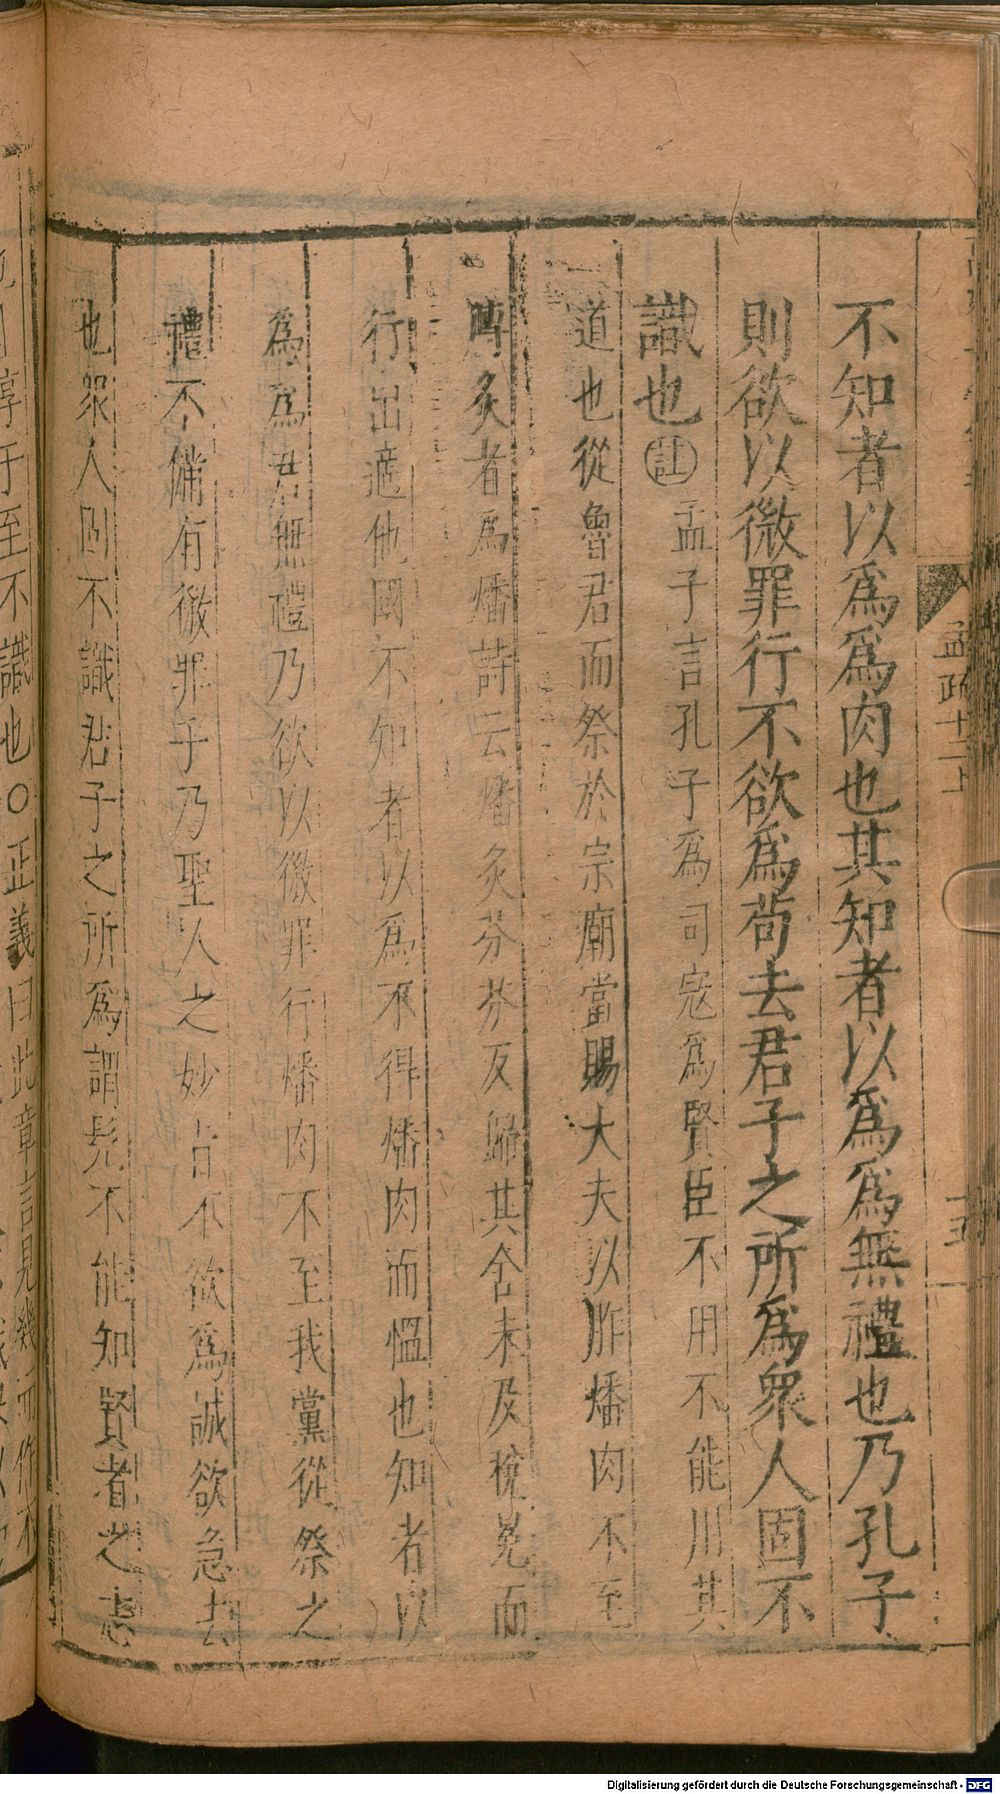 不知者以爲爲肉也其知者以爲爲無禮也乃孔子
則欲以微罪行不欲爲苟去君子之所爲衆人固不
識也註孟子言孔子爲司寇爲賢臣不用不能用其
道也從魯君而祭於宗廟當賜大夫以胙燔肉不至
膊炙者爲燔詩云燔炙芬芬反歸其舍未及稅冕而
行出適他國不知者以爲不得燔肉而慍也知者以
爲爲君無禮乃欲以微罪行燔肉不至我黨從祭之
禮不備有微罪乎乃聖人之妙旨不欲爲誠欲急去
也衆人固不識君子之所爲謂髠不能知賢者之志
孟疏十二下
淳于至不識也○正義曰此章言見幾而作不
Digitalisierung gefördert durch die Deutsche Forschungsgemeinschaft - DFG